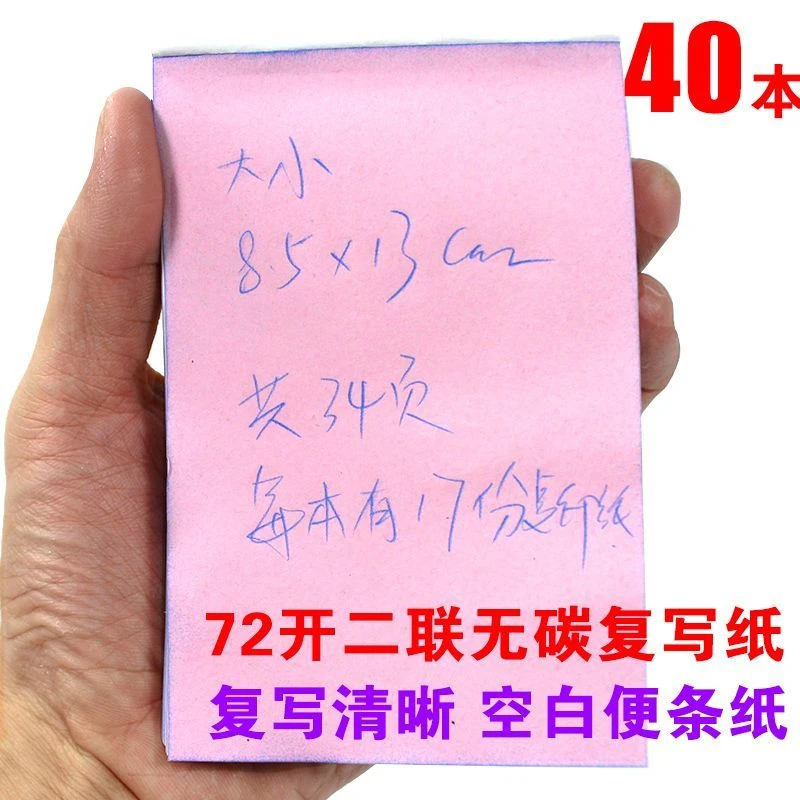 40本
大小
8.5×13cm
共34页
每本有17份复印纸
72开二联无碳复写纸
复写清晰 空白便条纸